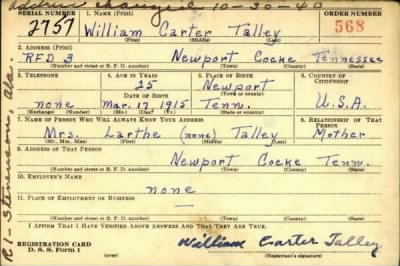 Address changed 10-30-40
SERIAL NUMBER 1. NAME (Print) ORDER NUMBER
2757 William Carter Talley 568
(First) (Middle) (Last)
2. ADDRESS (Print)
RFD 3 Newport Cocke Tennessee
(Number and street or R. F. D. number) (Town) (County) (State)
3. TELEPHONE 4. AGE IN YEARS 5. PLACE OF BIRTH 6. COUNTRY OF CITIZENSHIP
25 Newport
DATE OF BIRTH (Town or county)
none Mar. 17, 1915 Tenn. U.S.A.
(Exchange) (Number) (Mo.) (Day) (Yr.) (State or country)
7. NAME OF PERSON WHO WILL ALWAYS KNOW YOUR ADDRESS 8. RELATIONSHIP OF THAT PERSON
Mrs. Larthe (none) Talley Mother
(Mr., Mrs., Miss) (First) (Middle) (Last)
9. ADDRESS OF THAT PERSON
Newport Cocke Tenn.
(Number and street or R. F. D. number) (Town) (County) (State)
10. EMPLOYER'S NAME
none
11. PLACE OF EMPLOYMENT OR BUSINESS
(Number and street or R. F. D. number) (Town) (County) (State)
I AFFIRM THAT I HAVE VERIFIED ABOVE ANSWERS AND THAT THEY ARE TRUE.
REGISTRATION CARD
D. S. S. Form 1
William Carter Talley
(Registrant's signature)
R1 - Stevenson, Ala.